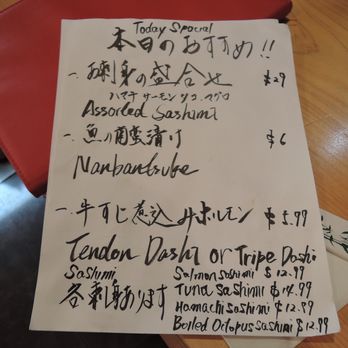 Today Special
本日のおすすめ!!
一、お刺身の盛合せ $29
ハマチ サーモン タコ マグロ
Assorted Sashimi
一、魚の南蛮漬け $6
Nanbantsuke
一、牛すじ煮込み ホルモン $5.99
Tendon Dashi or Tripe Dashi
Sashimi
各刺身あります
Salmon sashimi $12.99
Tuna sashimi $14.99
Hamachi sashimi $12.99
Boiled Octopus sashimi $12.99